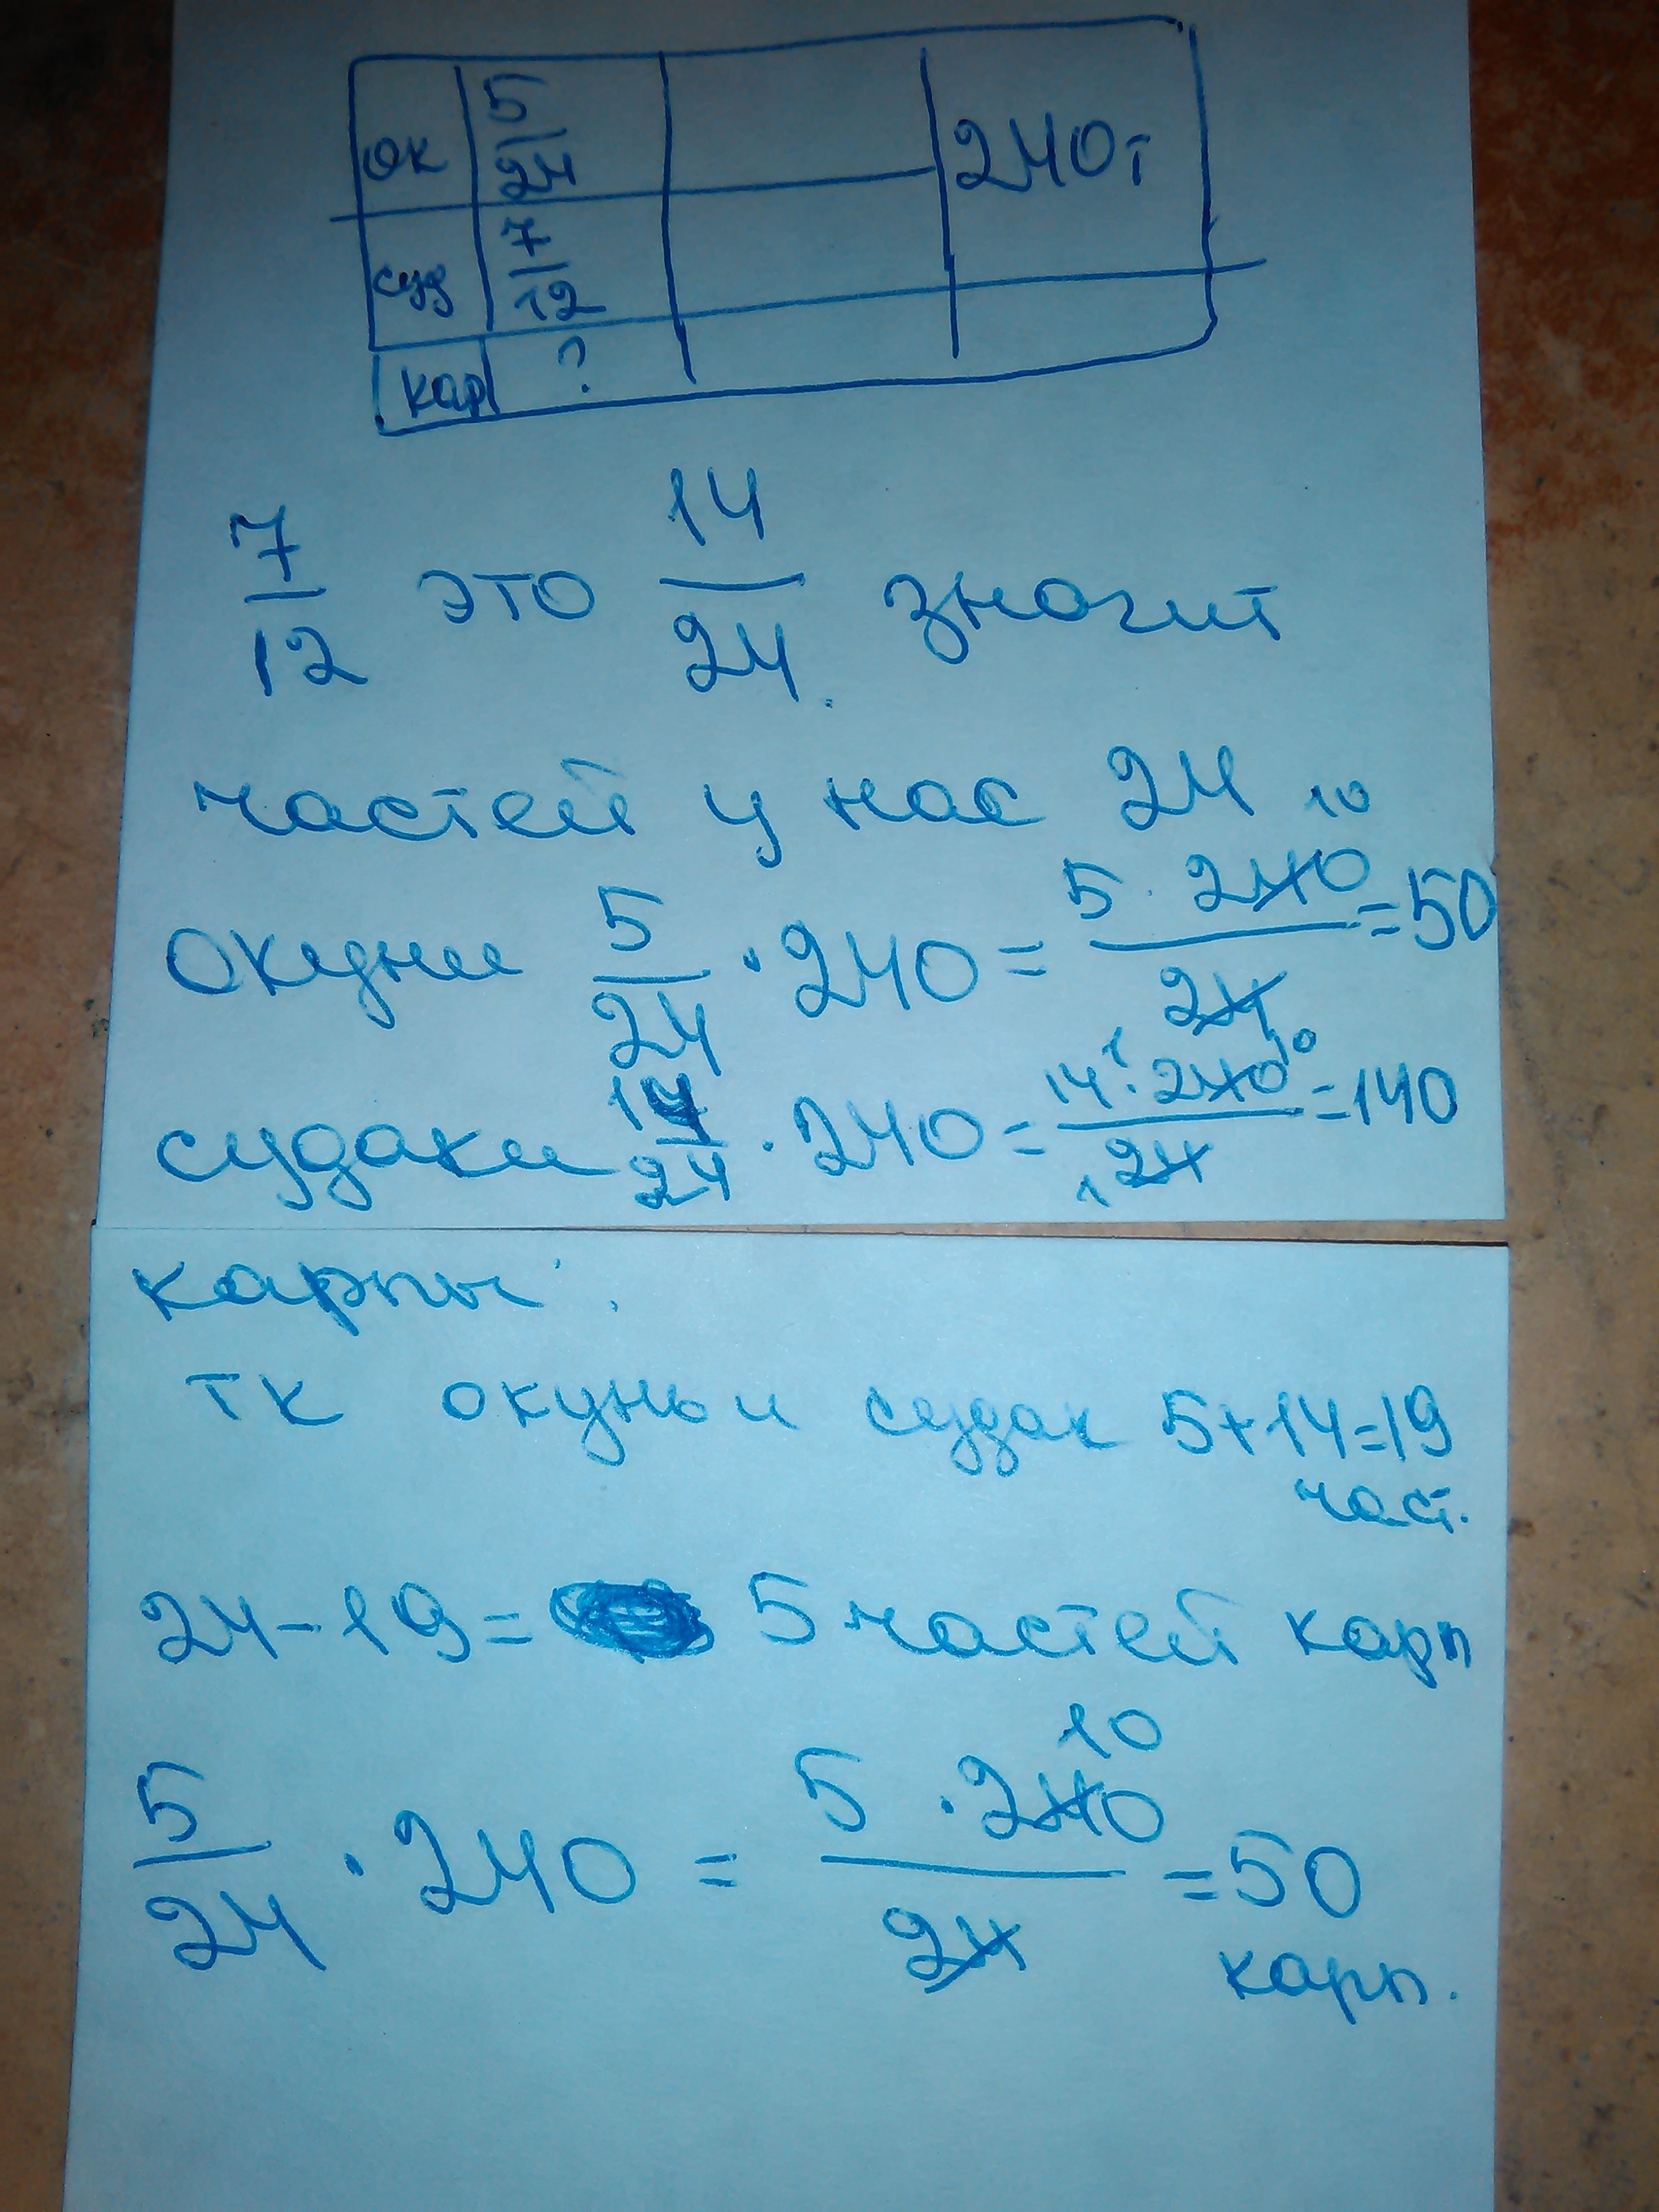 ок 5/24 240т
суд 7/12
кар ?
7/12 это 14/24 значит
частей у нас 24
10
окуни 5/24 · 240 = 5 · 240/24 = 50
1 10
судаки 14/24 · 240 = 14 · 240/24 = 140
1
карпы:
тк окунь и судак 5+14=19
част.
24-19= 5 частей карп
10
5/24 · 240 = 5 · 240/24 = 50
карп.